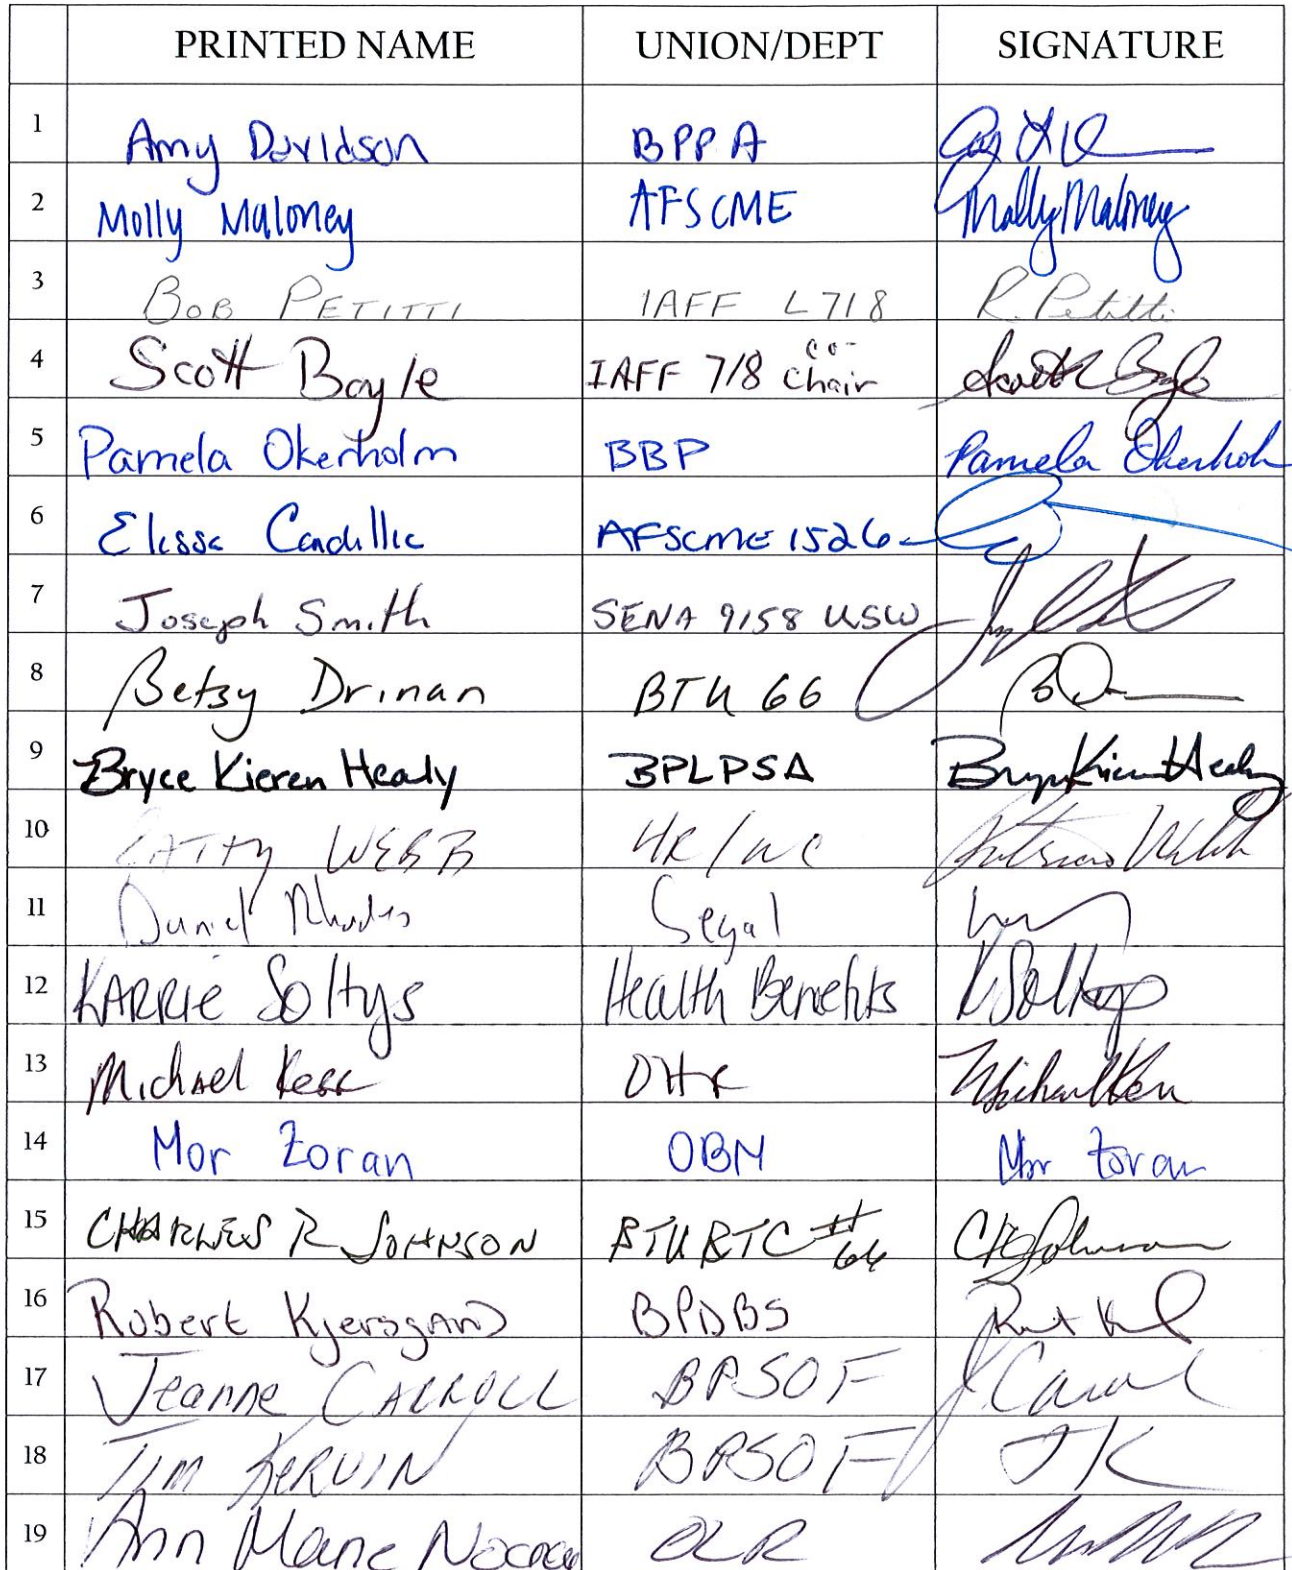 PRINTED NAME UNION/DEPT SIGNATURE
1 Amy Davidson BPPA
2 Molly Maloney AFSCME Molly Maloney
3 BOB PETITTI IAFF L718 R. Petitti
4 Scott Boyle IAFF 718 co-chair Scott Boyle
5 Pamela Okerholm BBP Pamela Okerholm
6 Elissa Cadillic AFSCME 1526
7 Joseph Smith SENA 9158 USW
8 Betsy Drinan BTU 66
9 Bryce Kieren Healy BPLPSA Bryce Kieren Healy
10 PATTY WEBB HR/WC
11 Daniel Rhodes Segal
12 KARRIE Soltys Health Benefits K Soltys
13 Michael Kerr OHR Michael Kerr
14 Mor Zoran OBM Mor Zoran
15 CHARLES R JOHNSON BTU RTC #66 CR Johnson
16 Robert Kjersgard BPDBS
17 Jeanne CARROLL BPSOF J. Carroll
18 TIM KERVIN BPSOF TK
19 Ann Marie OLR